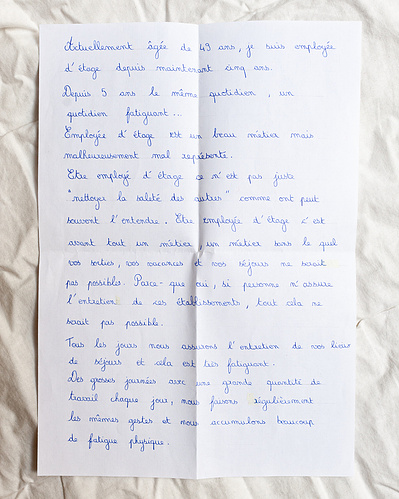 Actuellement âgée de 49 ans, je suis employée
d'étage depuis maintenant cinq ans.
Depuis 5 ans le même quotidien, un
quotidien fatiguant...
Employée d'étage est un beau métier mais
malheureusement mal représenté.
Etre employé d'étage ce n'est pas juste
"nettoyer la saleté des autres" comme ont peut
souvent l'entendre. Etre employée d'étage c'est
avant tout un métier, un métier sans le quel
vos sorties, vos vacances et vos séjours ne serait
pas possibles. Parce-que oui, si personne n'assure
l'entretien de ces établissements, tout cela ne
serait pas possible.
Tous les jours nous assurons l'entretien de vos lieux
de séjours et cela est très fatiguant.
Des grosses journées avec une grande quantité de
travail chaque jour, nous faisons régulièrement
les mêmes gestes et nous accumulons beaucoup
de fatigue physique.